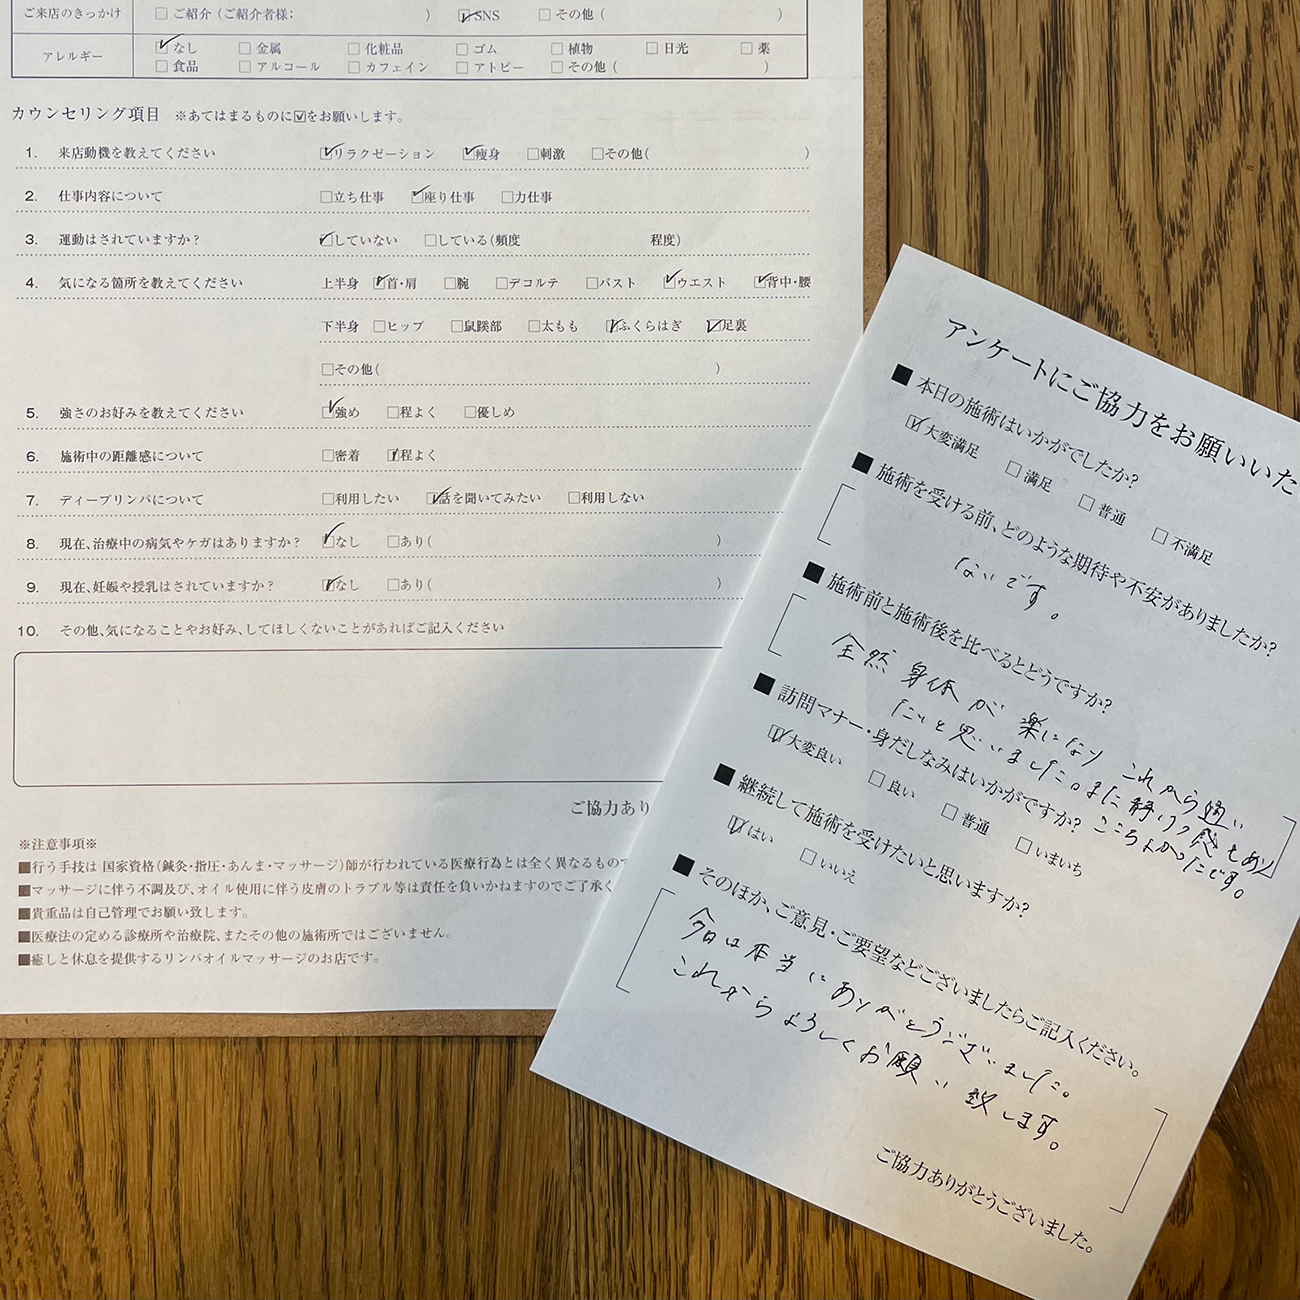 ご来店のきっかけ □ご紹介（ご紹介者様： ） ☑SNS □その他（ ）
アレルギー ☑なし □金属 □化粧品 □ゴム □植物 □日光 □薬
□食品 □アルコール □カフェイン □アトピー □その他（ ）
カウンセリング項目 ※あてはまるものに☑をお願いします。
1. 来店動機を教えてください ☑リラクゼーション ☑痩身 □刺激 □その他（ ）
2. 仕事内容について □立ち仕事 ☑座り仕事 □力仕事
3. 運動はされていますか？ ☑していない □している（頻度 程度）
4. 気になる箇所を教えてください 上半身 ☑首・肩 □腕 □デコルテ □バスト ☑ウエスト ☑背中・腰
下半身 □ヒップ □鼠蹊部 □太もも ☑ふくらはぎ ☑足裏
□その他（ ）
5. 強さのお好みを教えてください ☑強め □程よく □優しめ
6. 施術中の距離感について □密着 ☑程よく
7. ディープリンパについて □利用したい ☑話を聞いてみたい □利用しない
8. 現在、治療中の病気やケガはありますか？ ☑なし □あり（ ）
9. 現在、妊娠や授乳はされていますか？ ☑なし □あり（ ）
10. その他、気になることやお好み、してほしくないことがあればご記入ください
ご協力あり
※注意事項※
■行う手技は 国家資格（鍼灸・指圧・あんま・マッサージ）師が行われている医療行為とは全く異なるもので
■マッサージに伴う不調及び、オイル使用に伴う皮膚のトラブル等は責任を負いかねますのでご了承く
■貴重品は自己管理でお願い致します。
■医療法の定める診療所や治療院、またその他の施術所ではございません。
■癒しと休息を提供するリンパオイルマッサージのお店です。
アンケートにご協力をお願いいた
■本日の施術はいかがでしたか？
☑大変満足 □満足 □普通 □不満足
■施術を受ける前、どのような期待や不安がありましたか？
ないです。
■施術前と施術後を比べるとどうですか？
全然身体が楽になり これから通い
たいと思いました。また静けつ感もあり
ここちよかったです。
■訪問マナー・身だしなみはいかがですか？
☑大変良い □良い □普通 □いまいち
■継続して施術を受けたいと思いますか？
☑はい □いいえ
■そのほか、ご意見・ご要望などございましたらご記入ください。
今日は本当にありがとうございました。
これからよろしくお願い致します。
ご協力ありがとうございました。